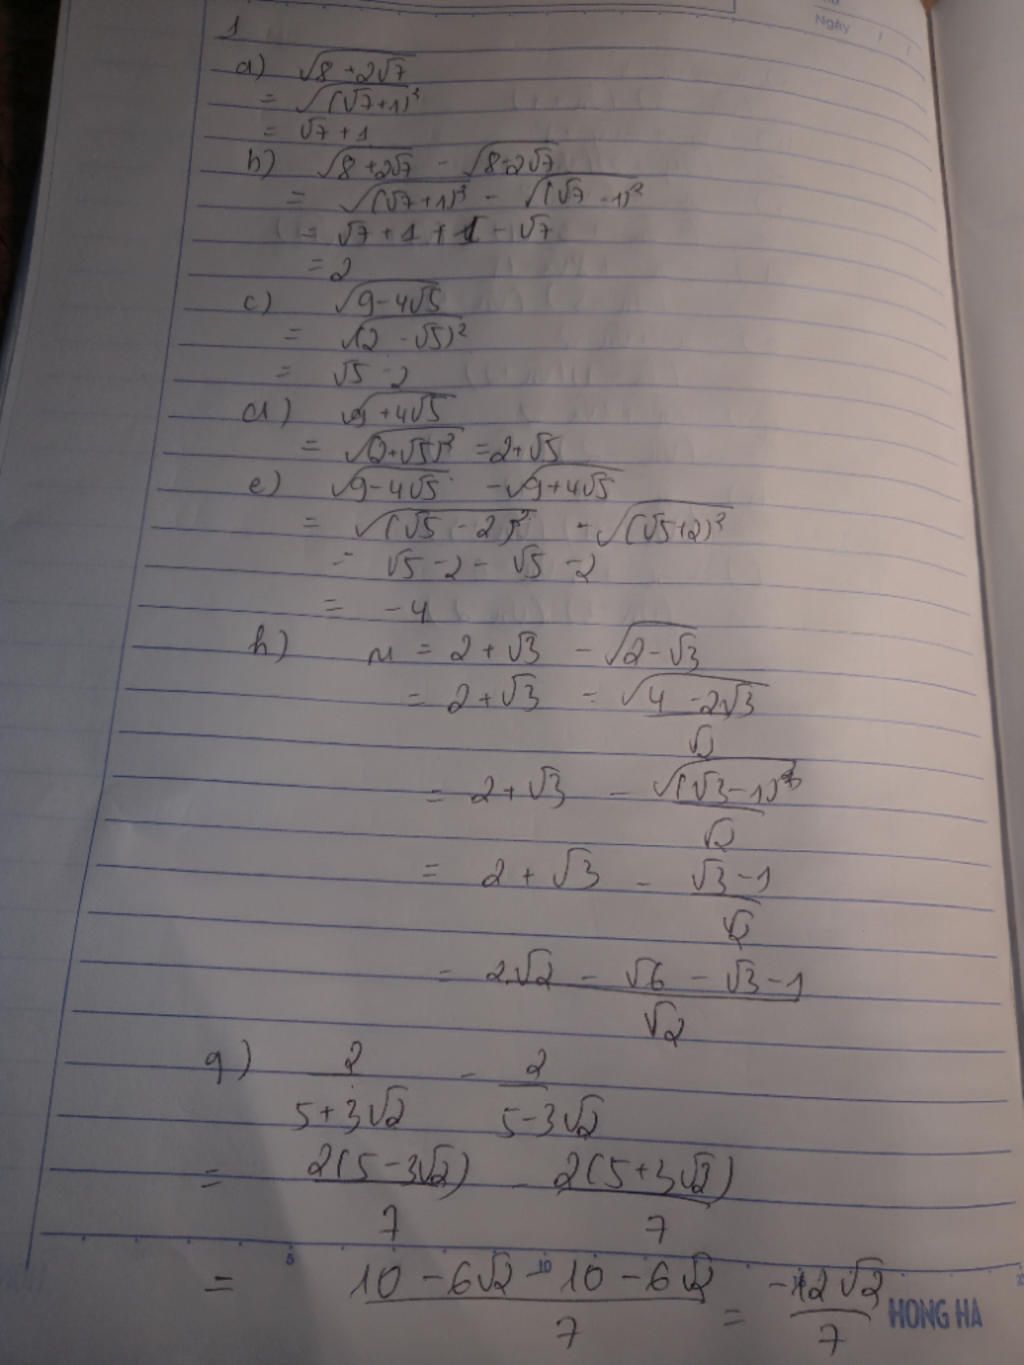 Ngày
1
a) √(8+2√7)
= √((√7+1)²)
= √7+1
b) √(8+2√7) - √(8-2√7)
= √((√7+1)²) - √((√7-1)²)
= √7+1+1-√7
= 2
c) √(9-4√5)
= √((2-√5)²)
= √5-2
d) √(9+4√5)
= √((2+√5)²) = 2+√5
e) √(9-4√5) - √(9+4√5)
= √((√5-2)²) - √((√5+2)²)
= √5-2-√5-2
= -4
h) M = 2+√3 - √(2-√3)
= 2+√3 - √(4-2√3)/√2
= 2+√3 - √((√3-1)²)/√2
= 2+√3 - (√3-1)/√2
= (2√2 - √6 - √3-1)/√2
g) 2/(5+3√2) - 2/(5-3√2)
= 2(5-3√2)/7 - 2(5+3√2)/7
5 10
= (10-6√2-10-6√2)/7 = -12√2/7
HONG HA